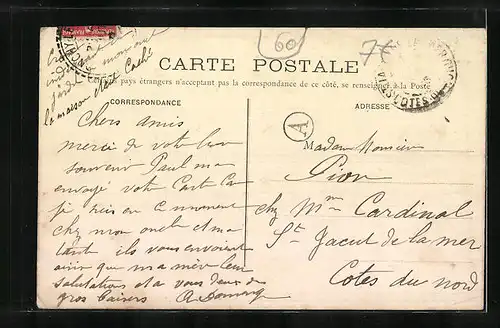 60
7€
CARTE POSTALE
pays étrangers n'acceptant pas la correspondance de ce côté, se renseigner à la Poste
CORRESPONDANCE
ADRESSE
A
la maison était Caché
Chers amis
merci de votre bon
souvenir Paul m'a
envoyé votre Carte Car
je suis en ce moment
chez mon oncle et ma
tante ils vous envoient
ainsi que ma mère leur
salutations et a vous deux des
gros baisers
Madame Monsieur
Pion
chez Mme Cardinal
St Jacut de la mer
Cotes du nord